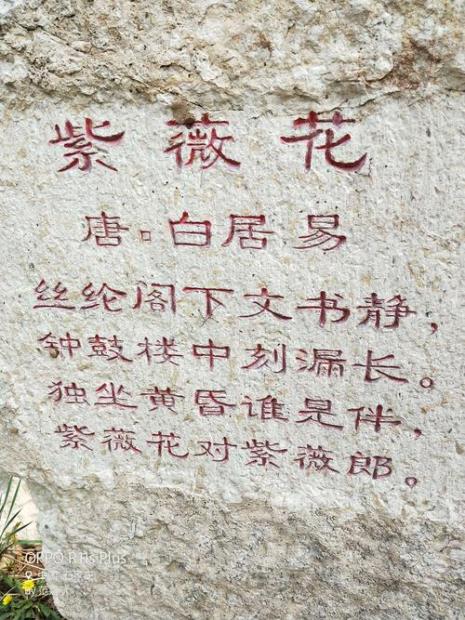 紫薇花
唐·白居易
丝纶阁下文书静，
钟鼓楼中刻漏长。
独坐黄昏谁是伴，
紫薇花对紫薇郎。
OPPO R11s Plus